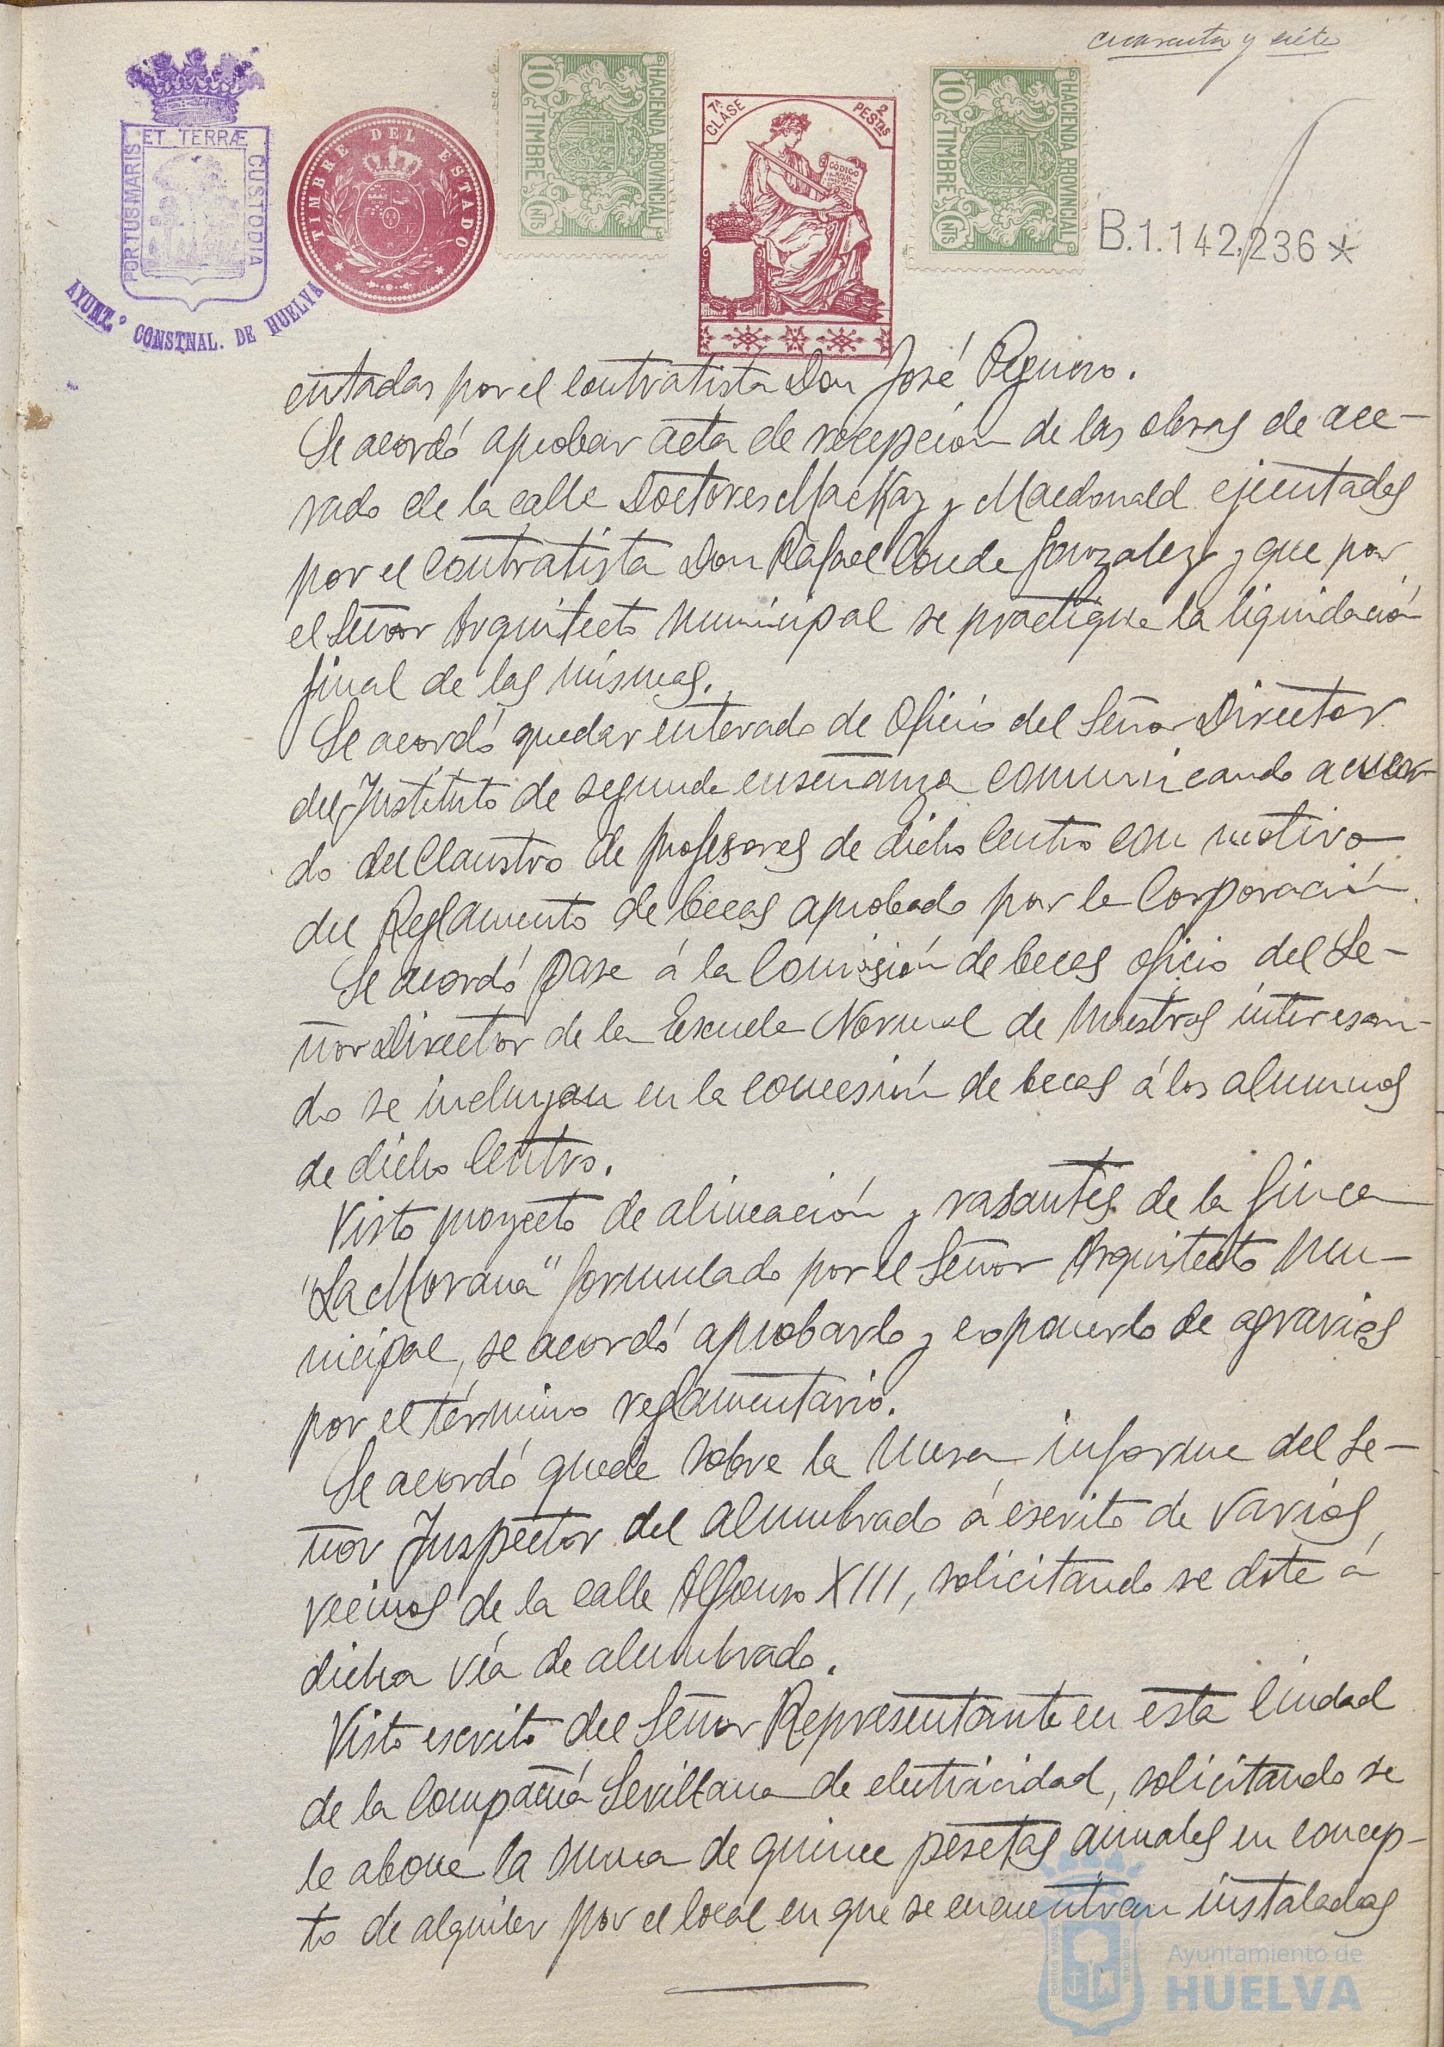 cuarenta y siete
PORTUS MARIS ET TERRÆ CUSTODIA
AYUNT.º CONSTNAL. DE HUELVA
TIMBRE DEL ESTADO
HACIENDA PROVINCIAL
10 TIMBRE CNTS
7ª CLASE 2 PESTAS
CÓDIGO
HACIENDA PROVINCIAL
10 TIMBRE CNTS
B.1.142.236*
entadas por el contratista Don José Reguero.
Se acordó aprobar acta de recepción de las obras de ace-
rado de la calle Doctores MacKay y Macdonald ejecutadas
por el contratista Don Rafael Conde Gonzalez y que por
el Señor Arquitecto municipal se practique la liquidación
final de las mismas.
Se acordó quedar enterado de oficio del Señor Director
del Instituto de segunda enseñanza comunicando acuer-
do del Claustro de profesores de dicho Centro con motivo
del Reglamento de becas aprobado por la Corporación.
Se acordó pase á la Comisión de becas oficio del Se-
ñor Director de la Escuela Normal de Maestros interesan-
do se incluyan en la concesión de becas á los alumnos
de dicho Centro.
Visto proyecto de alineación y rasantes de la finca
"La Morana" formulado por el Señor Arquitecto Mu-
nicipal, se acordó aprobarlo y exponerlo de agravios
por el término reglamentario.
Se acordó quede sobre la mesa informe del Se-
ñor Inspector del alumbrado á escrito de varios
vecinos de la calle Alfonso XIII, solicitando se dote á
dicha vía de alumbrado.
Visto escrito del Señor Representante en esta Ciudad
de la Compañía Sevillana de electricidad, solicitando se
le abone la suma de quince pesetas anuales en concep-
to de alquiler por el local en que se encuentran instaladas
Ayuntamiento de
HUELVA